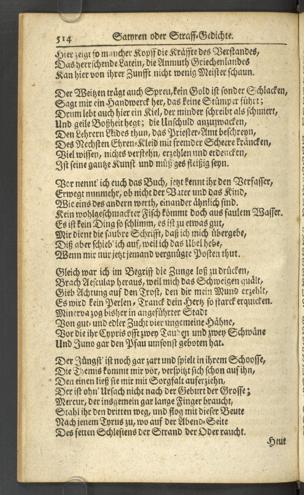 514 Satyren oder Straff-Gedichte.
Hier zeigt so mancher Kopff die Kräffte des Verstandes,
Das herrschende Latein, die Anmuth Griechenlandes
Kan hier von ihrer Zunfft nicht wenig Meister schaun.
Der Weitzen trägt auch Spreu, kein Gold ist sonder Schlacken,
Sagt mir ein Handwerck her, das keine Stümper führt;
Drum lebt auch hier ein Kiel, der minder schreibt als schmiert,
Und geile Boßheit hegt; die Unschuld anzuzwacken,
Den Lehrern Leides thun, das Priester-Amt beschreyn,
Des Nechsten Ehren-Kleid mit fremder Scheere kräncken,
Viel wissen, nichts verstehn, erzehlen und erdencken,
Ist seine gantze Kunst und muß ges fleißig seyn.
Wer nennt ich euch das Buch, jetzt kennt ihr den Verfasser,
Erwegt nunmehr, ob nicht der Vater und das Kind,
Wie eins des andern werth, einander ähnlich sind.
Kein wohlgeschmackter Fisch kömmt doch aus faulem Wasser.
Es ist kein Ding so schlimm, es ist zu etwas gut,
Mir dient die saubre Schrifft, daß ich mich übergebe,
Diß aber schieb' ich auf, weil ich das Übel hebe,
Wenn mir nur jetzt jemand vergnügte Posten thut.
Gleich war ich im Begriff die Zunge loß zu drücken,
Brach Aesculap heraus, weil mich das Schweigen quält,
Gieb Achtung auf den Trost, den dir mein Mund erzehlt,
Es wird kein Perlen-Tranck dein Hertz so starck erquicken.
Minerva zog bisher in angeführter Stadt
Von gut- und edler Zucht vier ungemeine Hähne,
Vor die ihr Cypris offt zwey Tauben und zwey Schwäne
Und Juno gar den Pfau umsonst geboten hat.
Der Jüngst' ist noch gar zart und spielt in ihrem Schoosse,
Die Themis kommt mir vor, verspitzt sich schon auf ihn,
Den einen ließ sie mir mit Sorgfalt auferziehn,
Der ist ohn' Ursach nicht nach der Geburt der Grosse;
Mercur, der insgemein gar lange Finger braucht,
Stahl ihr den dritten weg, und flog mit dieser Beute
Nach jenem Tyrus zu, wo auf der Abend-Seite
Des fetten Schlesiens der Strand der Oder raucht.
Heut